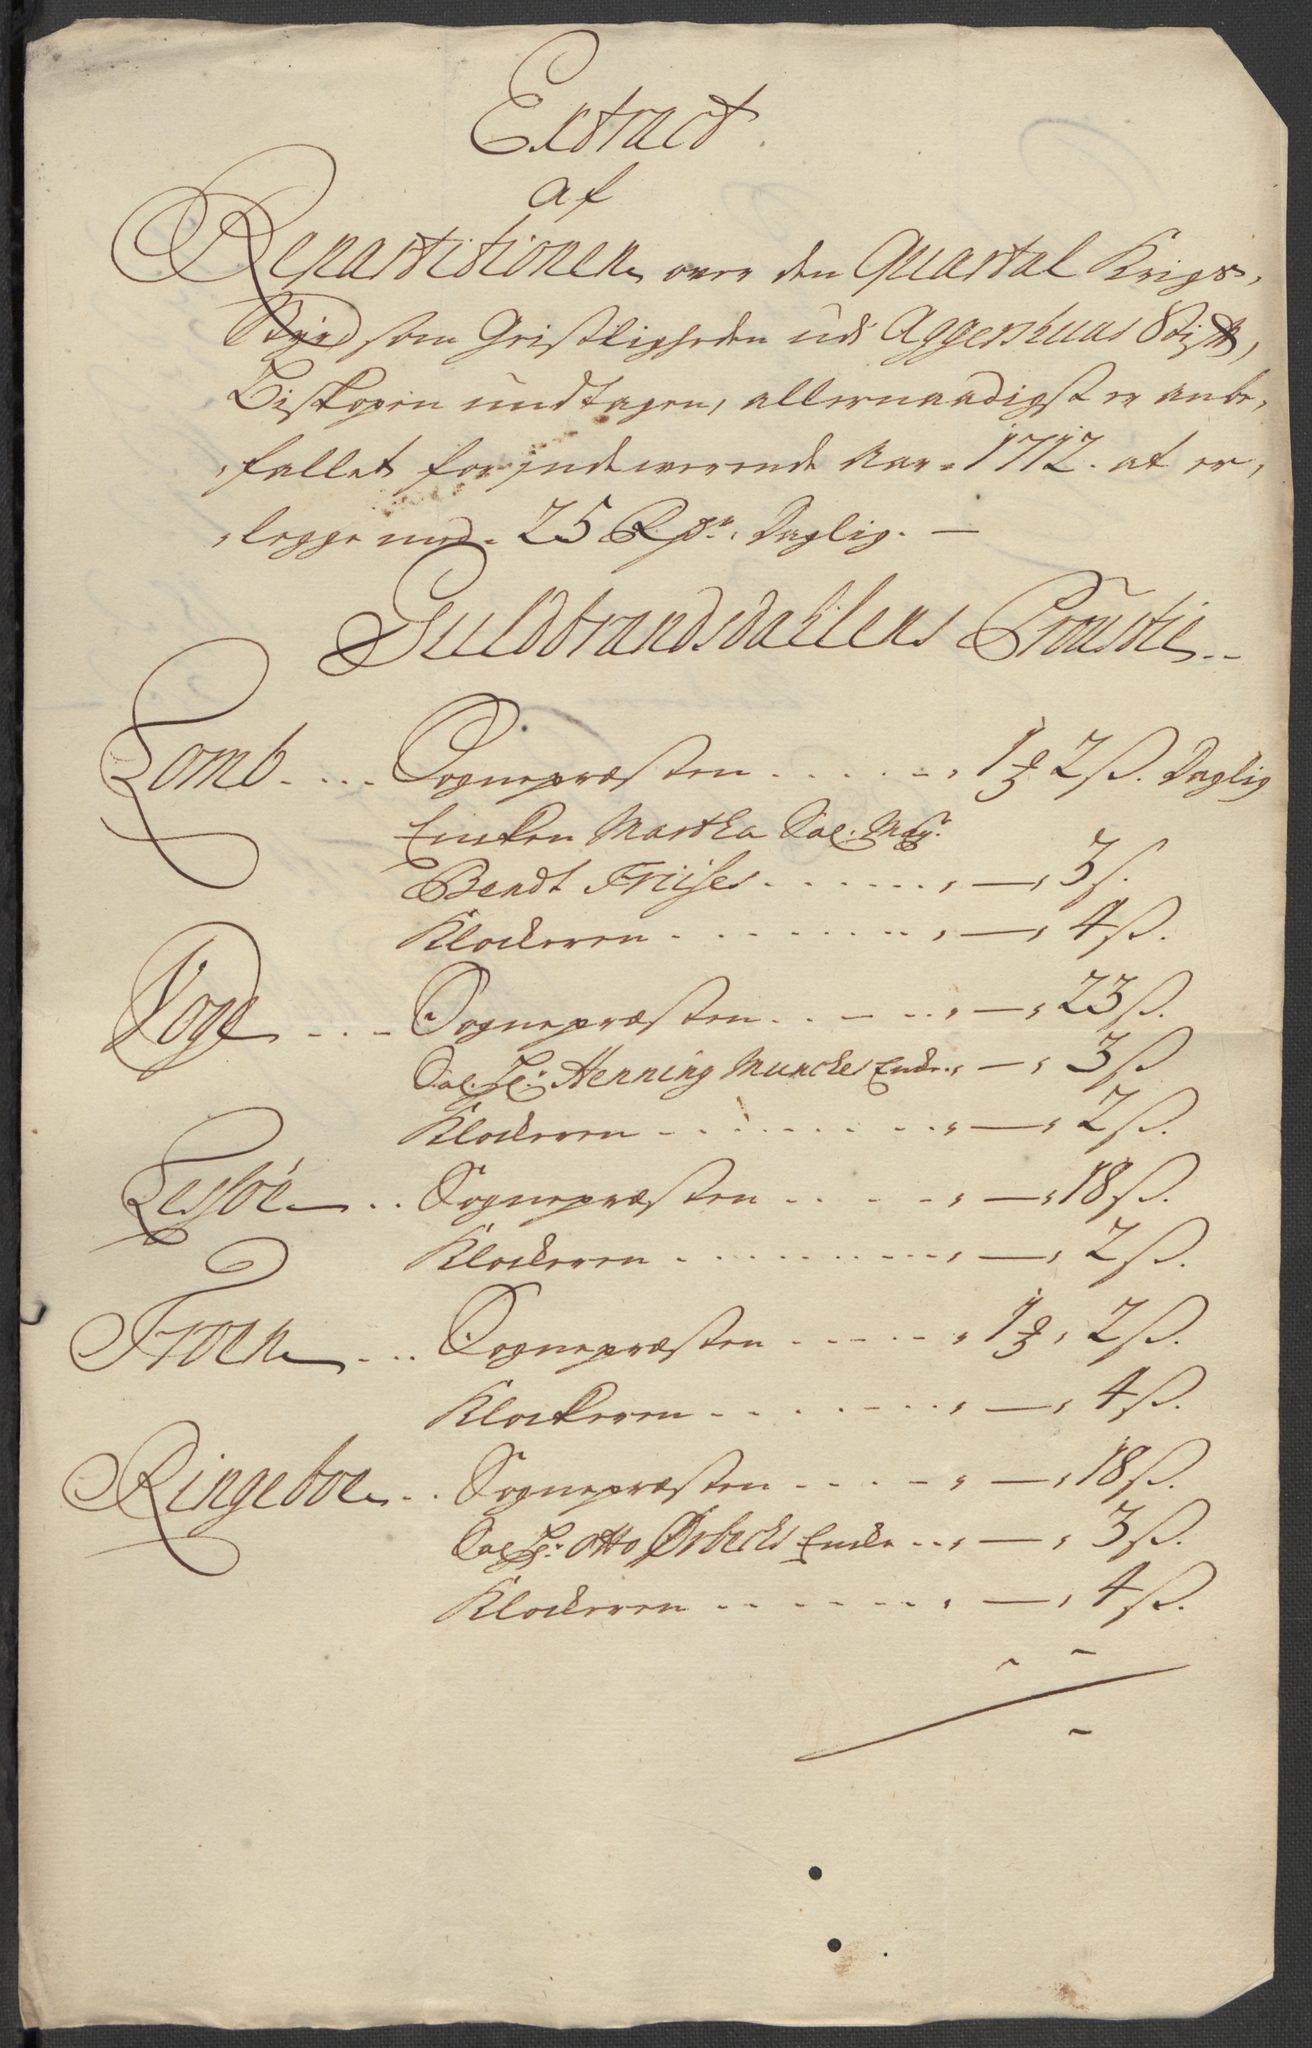 Extract
af
Repartitionen over den Quartal Krigs,
Styrd som Geistligheden udi Aggershuus Stift,
Biskopen undtagen, allernaadigst er anbe,
,fallet for indewerende Aar 1712. at er,
,legge med 25 Rdr. Daglig. —
Guldbrandsdahlens Proustie
Lomb .... Sognepræsten ...... 1 ℔ 2 ß. Daglig
Encken Martha Sal. Mag.
Bendt Friises ....... — 3 ß.
Klockeren ........ — 4 ß.
Voge ... Sognepræsten ..... — 23 ß.
Sal. Hr. Henning Munches Encke — 3 ß
Klockeren ......... — 2 ß.
Lessøe .. Sognepræsten ..... — 18 ß.
Klockeren ......... — 2 ß.
Froen ... Sognepræsten ..... 1 ℔ 2 ß.
Klockeren ....... — 4 ß.
Ringeboe .. Sognepræsten .... — 18 ß.
Sal. Hr. Otto Ørbechs Encke .. — 3 ß.
Klockeren ....... — 4 ß.